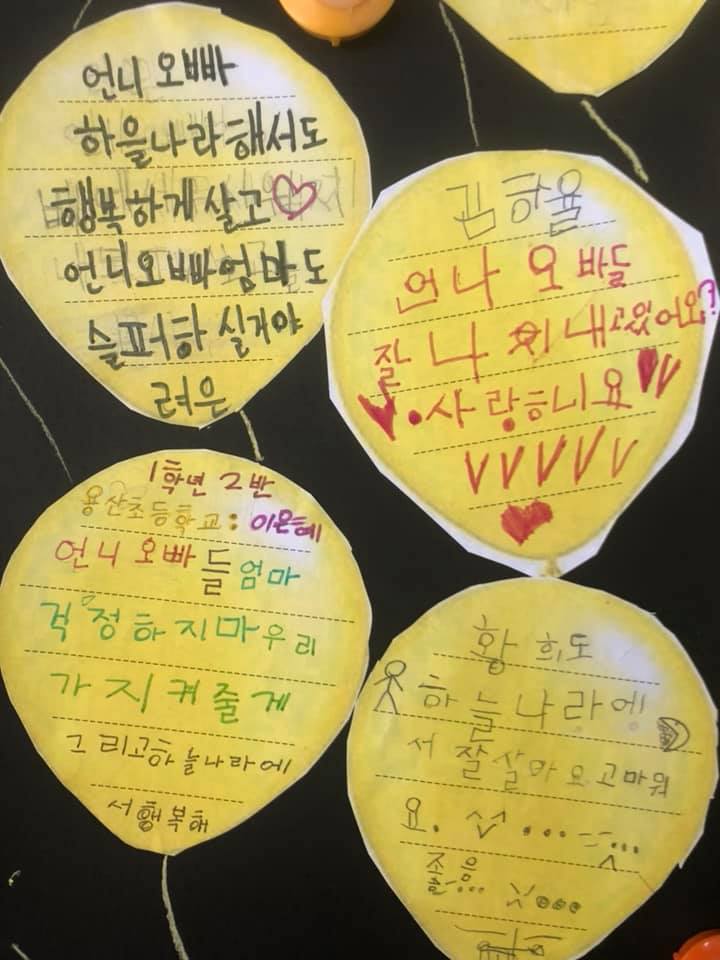 언니 오빠
하을나라해서도
행복하게 살고
언니오빠엄마도
슬퍼하실거야
려은
김하율
언나 오바들
잘 나 지내고있어요?
사랑하니요
1학년 2반
용산초등학교: 이은혜
언니 오빠들 엄마
걱정하지마우리
가 지켜줄게
그리고하늘나라에
서행복해
황희도
하늘나라에
서 잘살마요고마워
요.